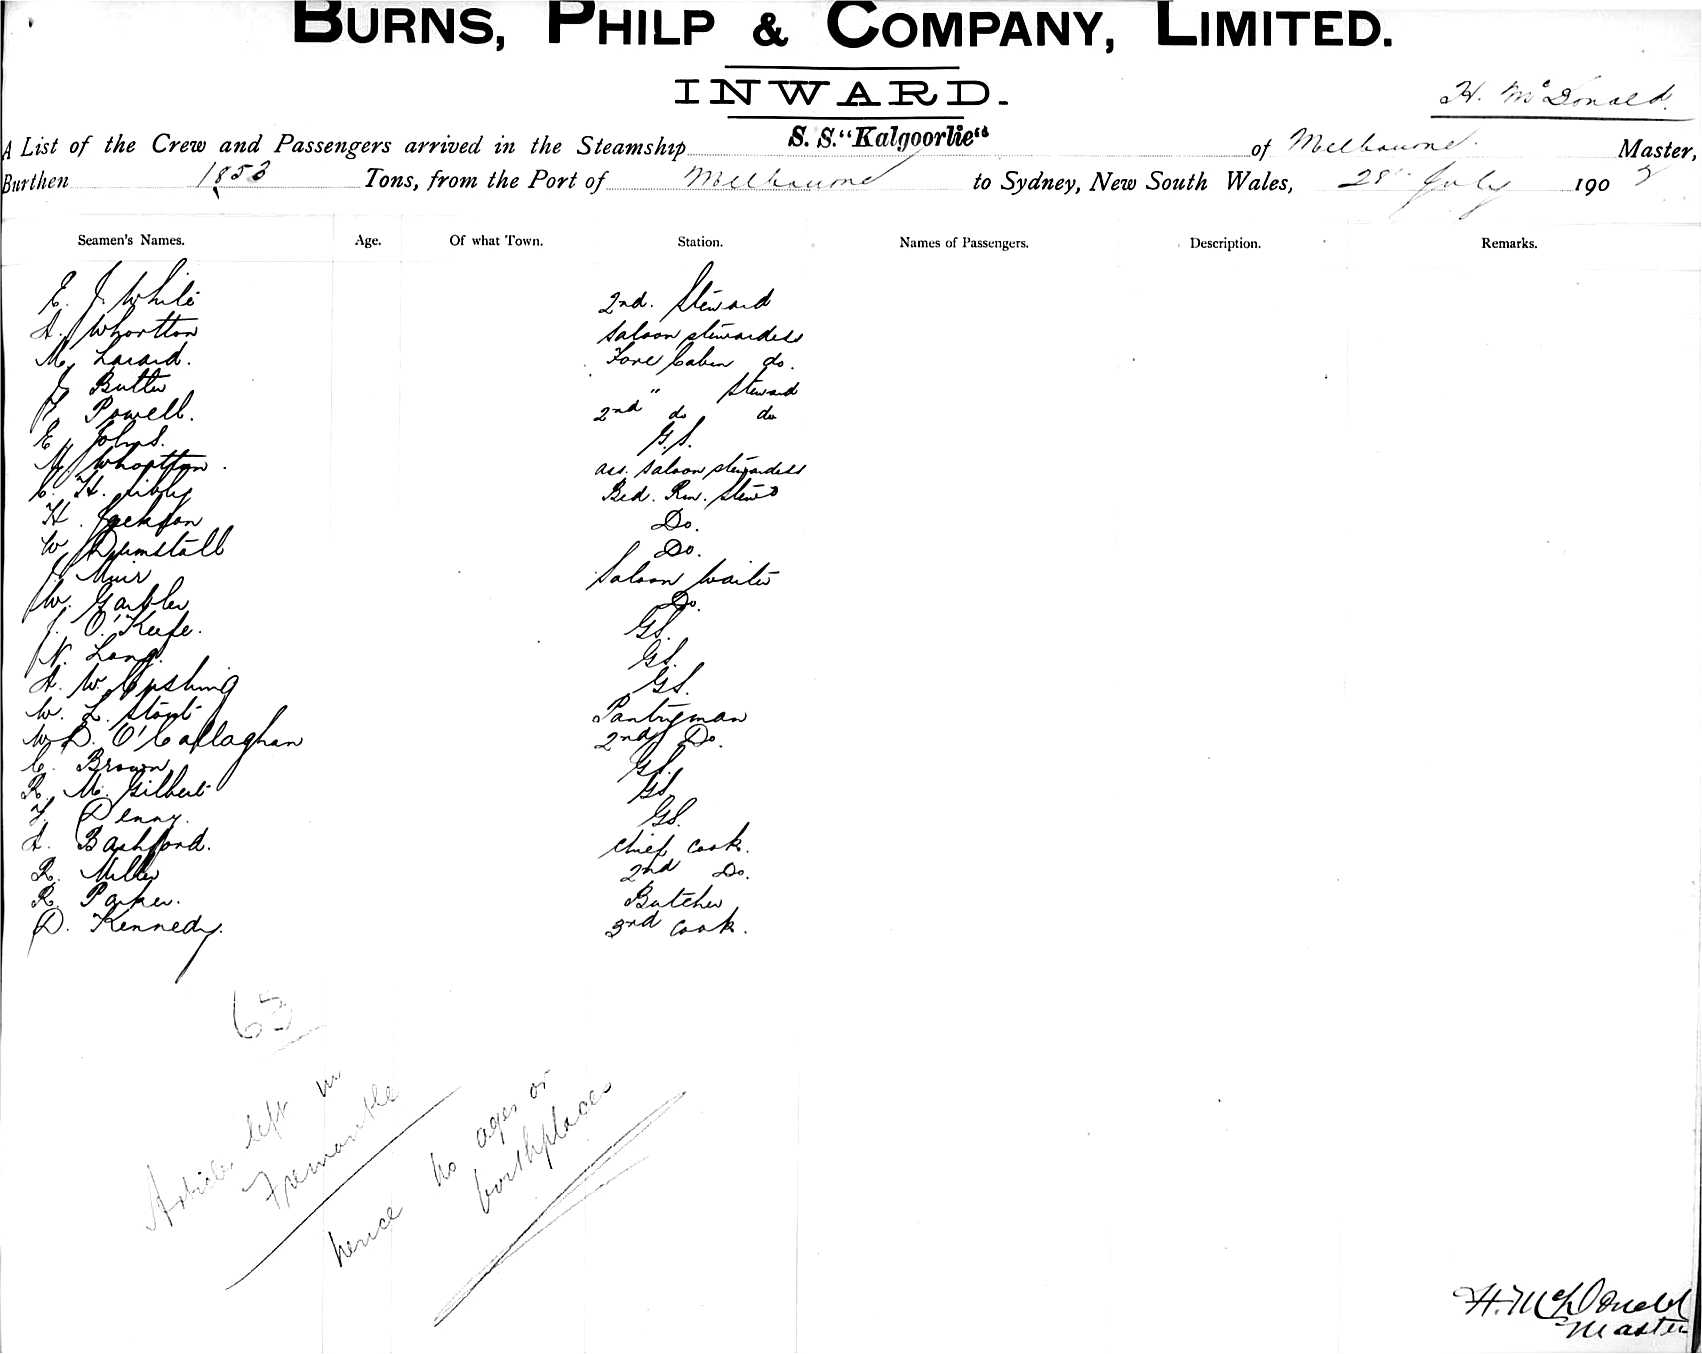 BURNS, PHILP & COMPANY, LIMITED.
INWARD.
H. McDonald
A List of the Crew and Passengers arrived in the Steamship S. S. "Kalgoorlie" of Melbourne Master,
Burthen 1853 Tons, from the Port of Melbourne to Sydney, New South Wales, 28 July 190
Seamen's Names. Age. Of what Town. Station. Names of Passengers. Description. Remarks.
E. J. White 2nd. Steward
A. Whortton Saloon Stewardess
M. Lazard. Fore Cabin do.
J. Butler " Steward
Powell. 2nd do do
E. Johns. G.S.
M. Whortton. ass. Saloon Stewardess
C. H. Bed. Rm. Stewd
H. Jackson Do.
W. Do.
J. Muir Saloon Waiter
W. Garbler Do.
J. O'Keefe. GS.
N. Long. GS.
A. W. Cushing GS.
W. L. Stout Pantryman
W. D. O'Callaghan 2nd Do.
C. Brown GS.
R. M. Gilbert GS.
F. Denny. GS.
A. Bashford. Chief Cook.
R. Miller 2nd Do.
R. Parker. Butcher
D. Kennedy. 3rd Cook.
63
Articles left in
Fremantle
hence no ages or
birthplaces
H. McDonald
Master